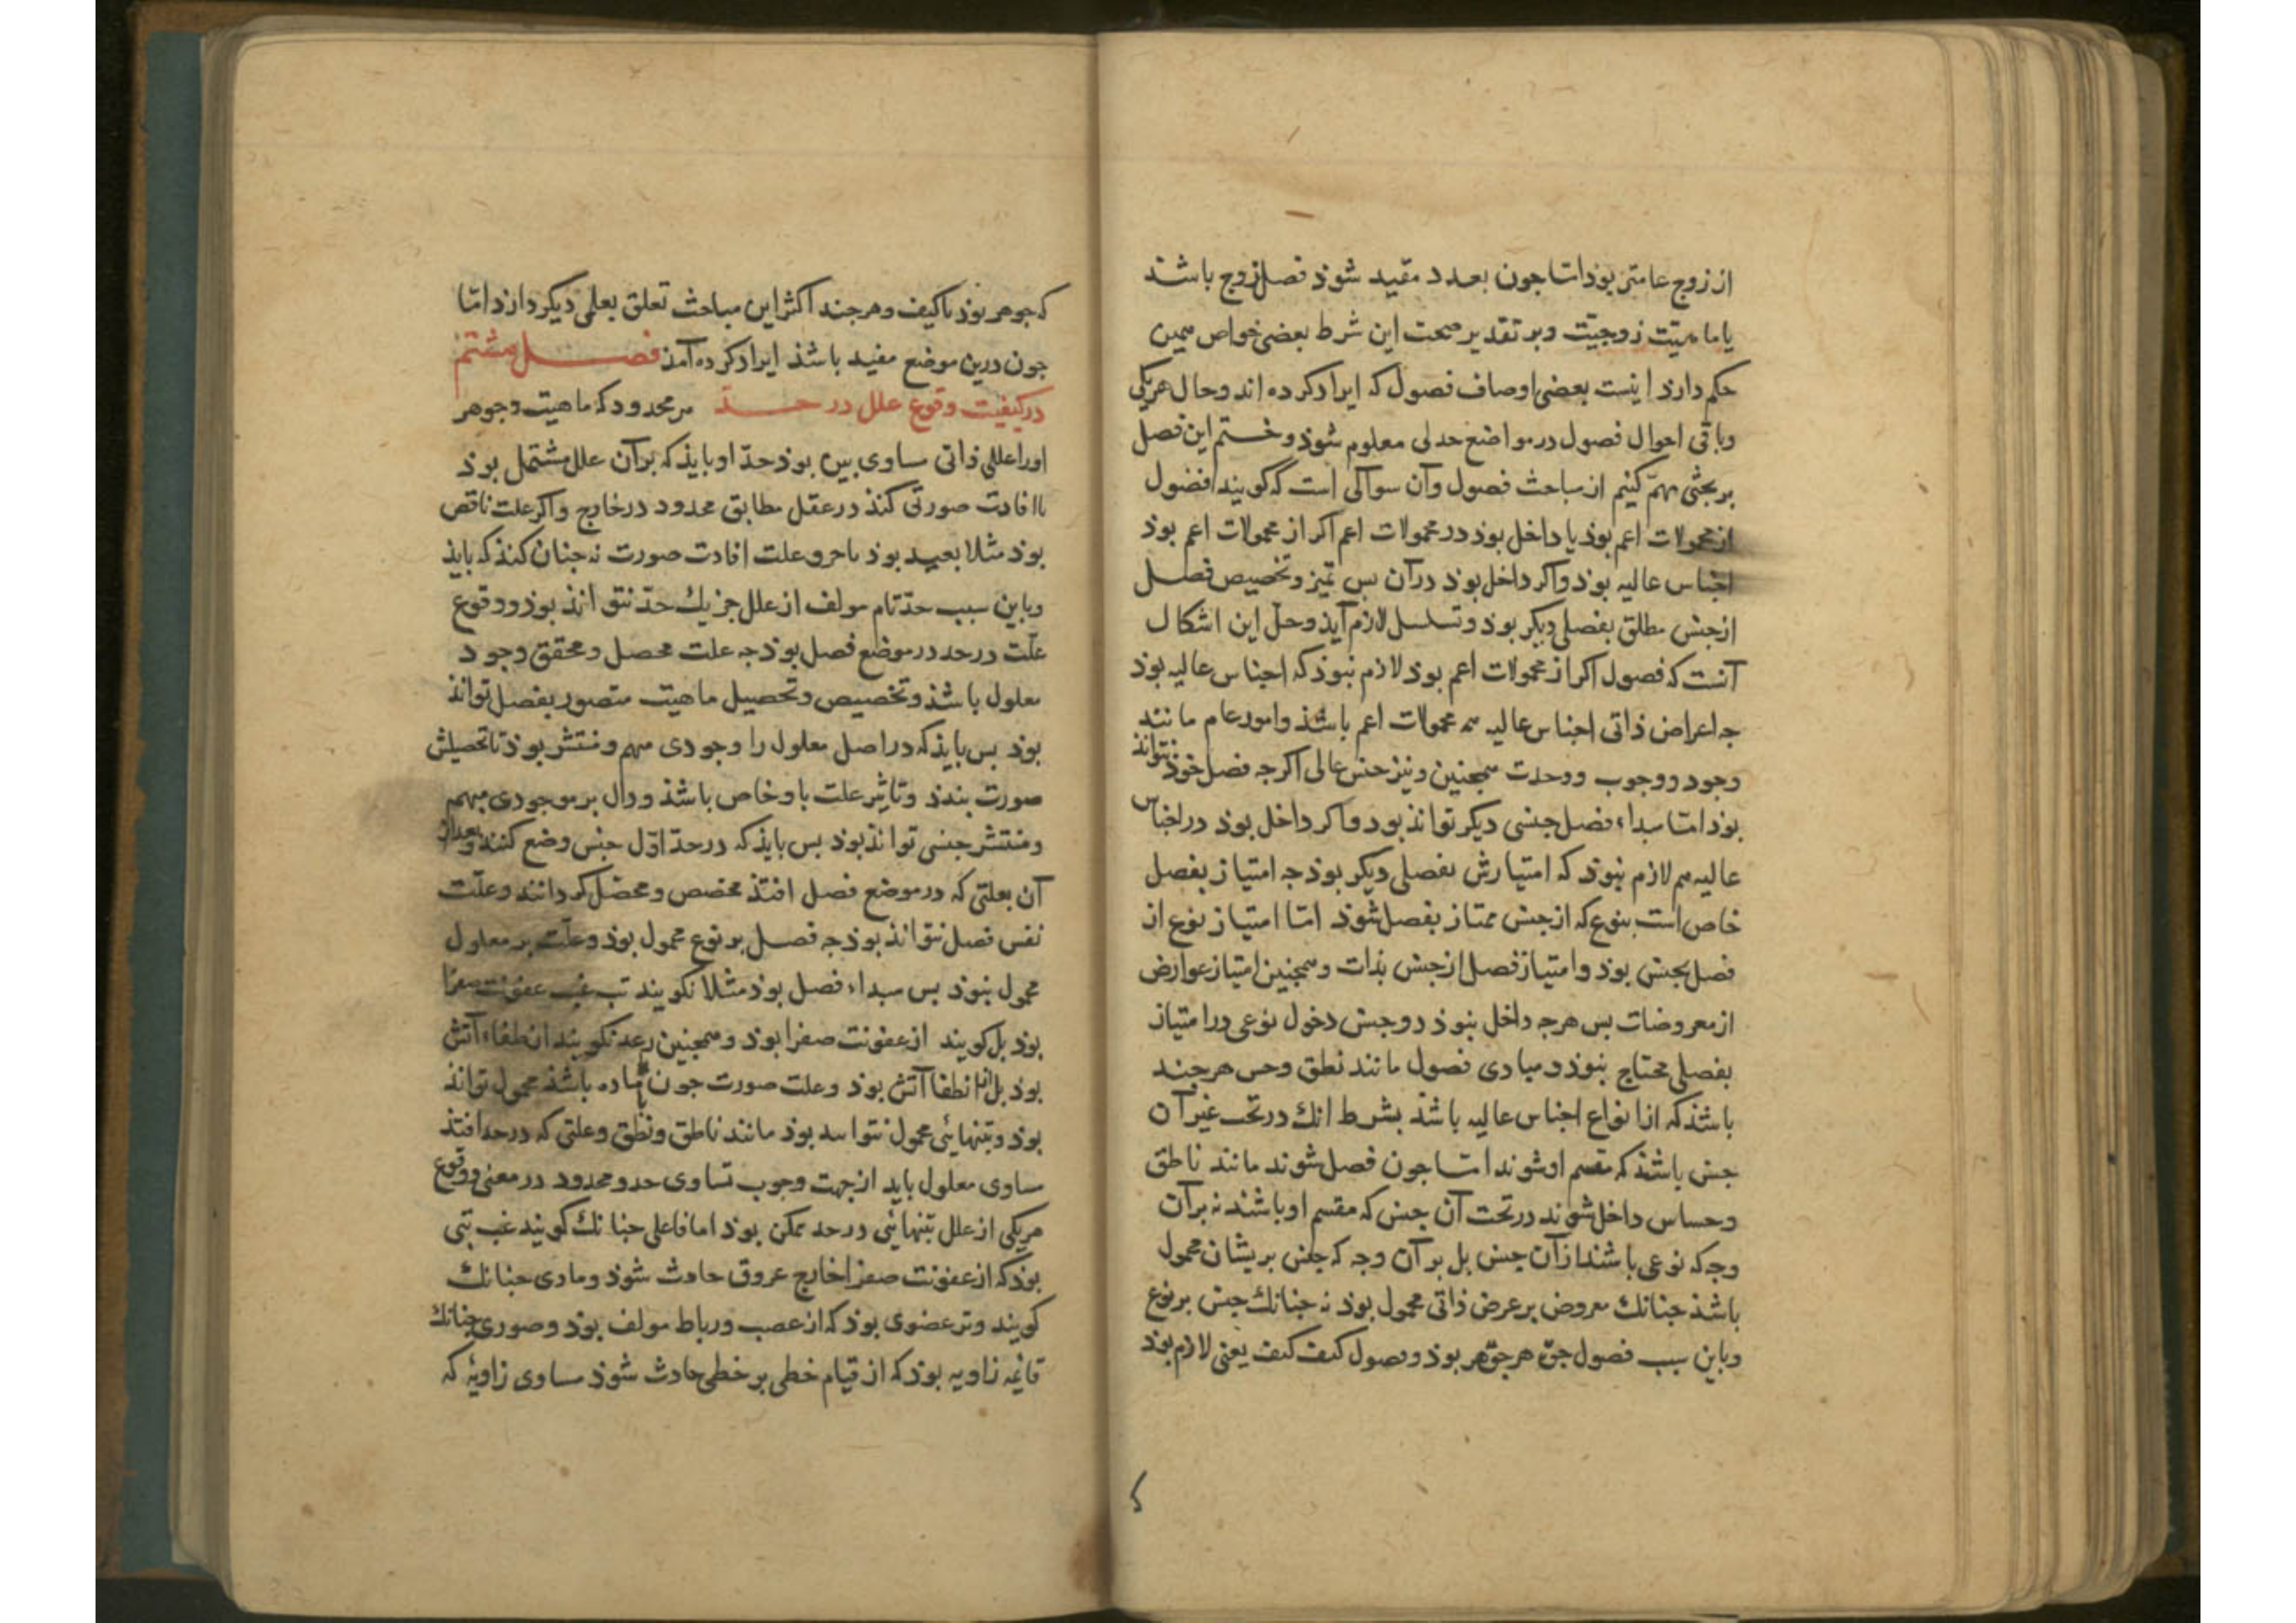 از زوج عامتر بوذ اما جون بعدد مقید شوذ فصل زوج باشذ
یا ماهیّت زوجیّت وبر تقدیر صحت این شرط بعضی خواص همین
حکم دارذ اینست بعضی اوصاف فصول که ایراد کرده اند وحال هریکی
وباقی احوال فصول در مواضع جدلی معلوم شوذ وختم این فصل
بر بحثی مهمّ کنیم از مباحث فصول وآن سوآلی است که کویند فصول
از محمولات اعم بوذ یا داخل بوذ در محمولات اعم اکر از محمولات اعم بوذ
اجناس عالیه بوذ واکر داخل بوذ درآن بس تمیز وتخصیص فصل
از جنس مطلق بفصلی دیکر بوذ وتسلسل لازم آیذ وحلّ این اشکال
آنست که فصول اکر از محمولات اعم بوذ لازم نبوذ که اجناس عالیه بوذ
جه اعراض ذاتی اجناس عالیه هم محمولات اعم باشذ وامور عام مانند
وجود ووجوب ووحدت همجنین ونیز جنس عالی اکرجه فصل خوذ نتواند
بوذ اما مبداء فصل جنسی دیکر تواند بود واکر داخل بوذ در اجناس
عالیه هم لازم نبوذ که امتیازش بفصلی دیکر بوذ جه امتیاز بفصل
خاص است بنوع که از جنس ممتاز بفصل شوذ اما امتیاز نوع از
فصل بجنس بوذ وامتیاز فصل از جنس بذات وهمجنین امتیاز عوارض
از معروضات بس هرجه داخل بنوذ در وجنس دخول نوعی در امتیاز
بفصلی محتاج نبوذ ومبادی فصول مانند نطق وحس هرجند
باشذ که از انواع اجناس عالیه باشذ بشرط انک در تحت غیر آن
جنس باشذ که مقسم او شوند اما جون فصل شوند مانند ناطق
وحساس داخل شوند در تحت آن جنس که مقسم او باشند نه برآن
وجه که نوعی باشند از آن جنس بل برآن وجه که جنس بریشان محمول
باشذ جنانک معروض بر عرض ذاتی محمول بوذ نه جنانک جنس بر نوع
وباین سبب فصول جوهر جوهر بوذ وفصول کیف کیف یعنی لازم بوذ
که جوهر بوذ یا کیف وهرجند اکثر این مباحث تعلق بعلمی دیکر دارذ اما
جون درین موضع مفید باشذ ایراد کرده آمذ فصل هشتم
در کیفیت وقوع علل در حدّ هر محدود که ماهیت وجوهر
اورا عللی ذاتی مساوی بین بوذ حدّ او بایذ که برآن علل مشتمل بوذ
تا افادت صورتی کنذ در عقل مطابق محدود در خارج واکر علت ناقص
بوذ مثلا بعید بوذ یا جزو علت افادت صورت نه جنان کنذ که بایذ
وباین سبب حدّ تام مولف از علل جز یک حدّ نتواند بوذ ووقوع
علّت در حد در موضع فصل بوذ جه علت محصل ومحقق وجود
معلول باشذ وتخصیص وتحصیل ماهیت متصور بفصل تواند
بوذ بس بایذ که در اصل معلول را وجودی مبهم ومنتشر بوذ تا تحصیلش
صورت بندذ وتاثیر علت باو خاص باشذ ودال بر موجودی مبهم
ومنتشر جنسی تواند بوذ بس بایذ که در حدّ اوّل جنس وضع کنند وبعد از
آن بعلتی که در موضع فصل افتذ مخصص ومحصل کردانند وعلّت
نفس فصل نتواند بوذ جه فصل بر نوع محمول بوذ وعلّت بر معلول
محمول نبوذ بس مبداء فصل بوذ مثلا نکویند تب غب عفونت صفرا
بوذ بل کویند از عفونت صفرا بوذ وهمجنین رعد نکویند انطفاء آتش
بوذ بل از انطفا آتش بوذ وعلت صورت جون با ماده باشذ محمول تواند
بوذ وبتنهائی محمول نتواند بوذ مانند ناطق ونطق وعلتی که در حد افتذ
مساوی معلول باید از جهت وجوب تساوی حد ومحدود در معنی ووقوع
هریکی از علل بتنهائی در حد ممکن بوذ اما فاعلی جنانک کویند غب تبی
بوذ که از عفونت صفرا خارج عروق حادث شوذ ومادی جنانک
کویند وتر عضوی بوذ که از عصب ورباط مولف بوذ وصوری جنانک
قائمه زاویه بوذ که از قیام خطی بر خطی حادث شوذ مساوی زاویهٔ که